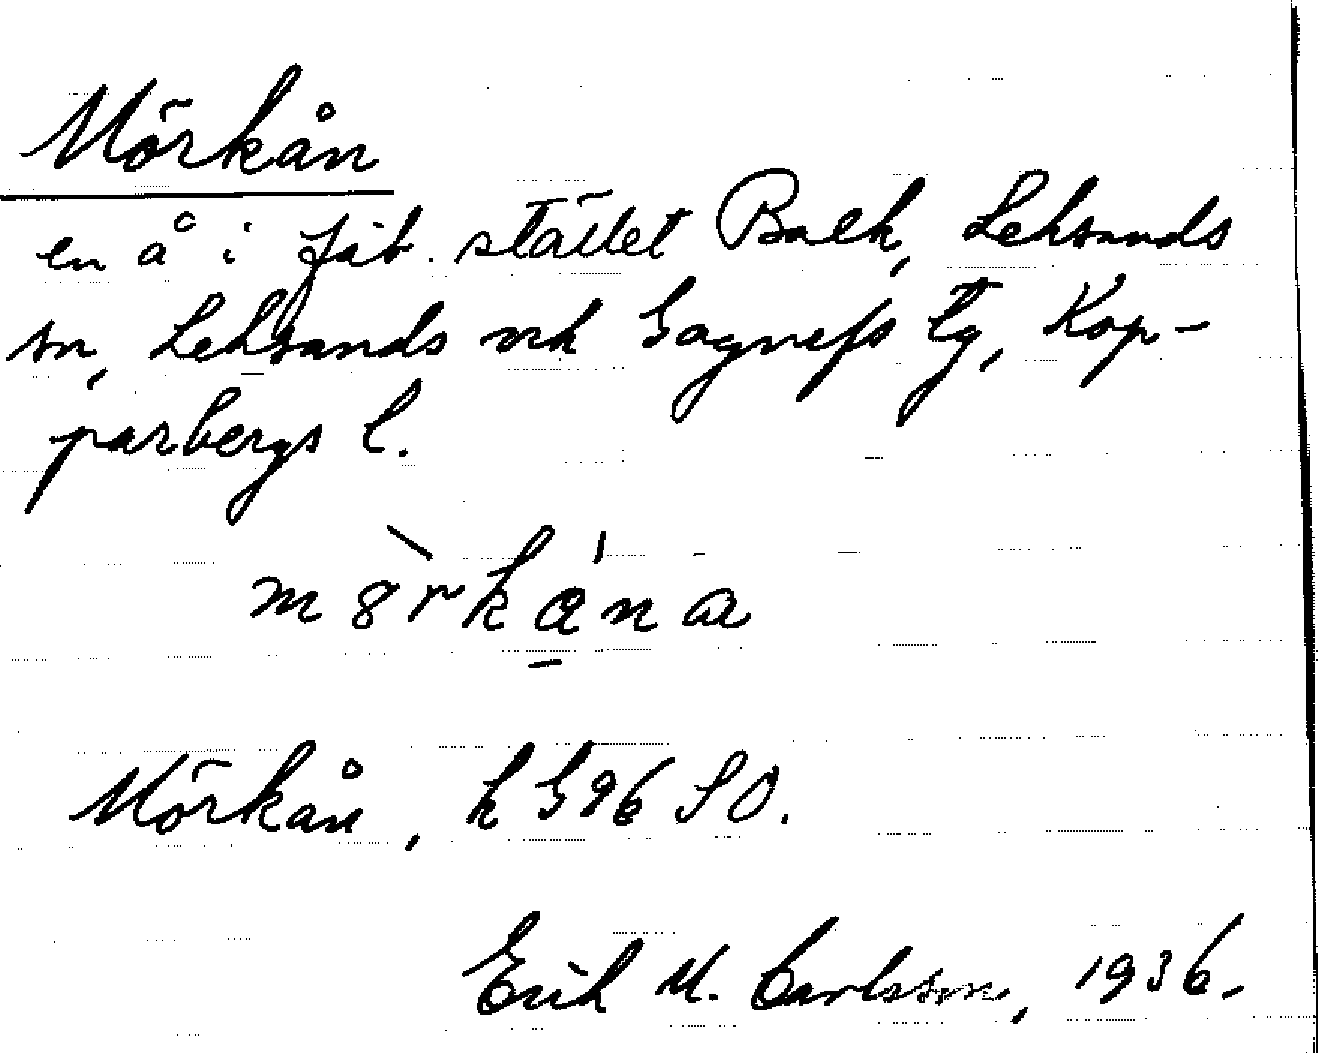 Mörkån
en å i fäb. stället Balk, Leksands
sn, Leksands och Gagnefs tg, Kop-
parbergs l.
mörkǻna
Mörkån, k G96 SO.
Erik M. Carlsson, 1936.